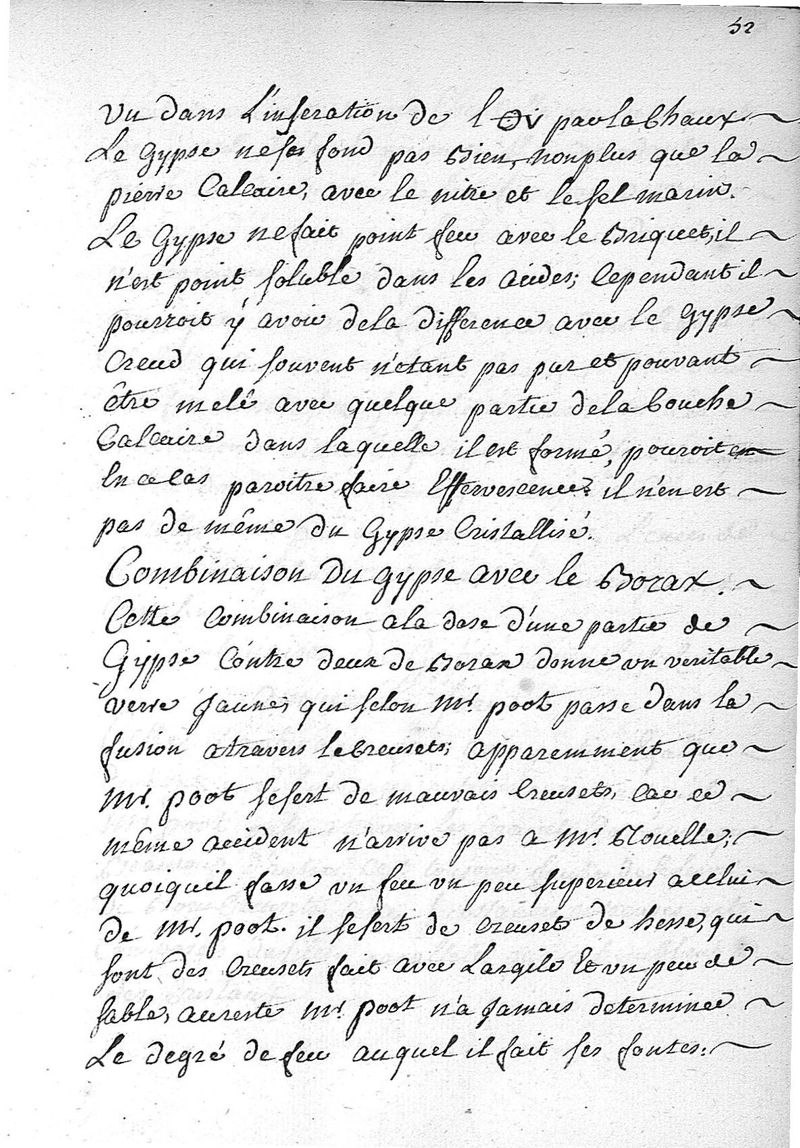 52
vu dans L'inseration de l par la Chaux
Le Gypse ne se fond pas Bien, non plus que la
pierre Calcaire, avec le nitre et le sel marin.
Le Gypse ne fait point feu avec le Briquet, il
n'est point soluble dans les acides; Cependant il
pourroit y avoir de la difference avec le Gypse
Creud qui souvent n'etant pas pur et pouvant
être melé avec quelque partie de la Couche
Calcaire dans laquelle il est formé, pouroit
En ce cas paroître faire Effervescence; il n'en est
pas de même du Gypse Cristallisé.
Combinaison Du gypse avec le Borax.
Cette Combinaison a la dose d'une partie de
Gypse Contre deux de Borax donne un veritable
verre Jaune, qui selon Mr. poot passe dans la
fusion a travers le Creusets; apparemment que
Mr. poot se sert de mauvais Creusets, car ce
même accident n'arrive pas a Mr. Rouelle;
quoiquil fasse un feu un peu superieur a celui
de Mr. poot. il se sert de Creusets de hesse, qui
sont des Creusets fait avec Largile Et un peu de
sable, au reste Mr. poot n'a Jamais determinee
Le degré de feu auquel il fait ses fontes.